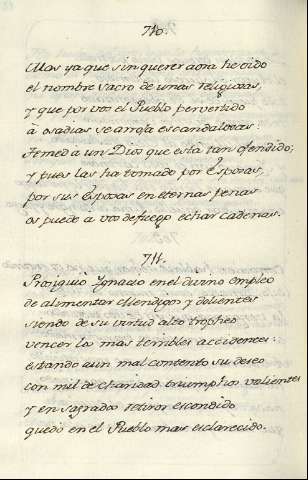 710.
Mas ya que sin querer aora he oido
el nombre sacro de unas religiosas,
y que por vos el Pueblo pervertido
à osadias se arroja escandalosas:
Temed a un Dios que está tan ofendido;
y pues las ha tomado por Esposas,
por sus Esposas en eternas penas
os puede à vos de fuego echar cadenas.
711.
Prosiguio Ygnacio en el divino empleo
de alimentar Mendigos y dolientes
siendo de su virtud alto tropheo
vencer los mas terribles accidentes:
estando aun mal contento su deseo
con mil de charidad triumphos valientes
y en sagrados retiros escondido
quedó en el Pueblo mas esclarecido.